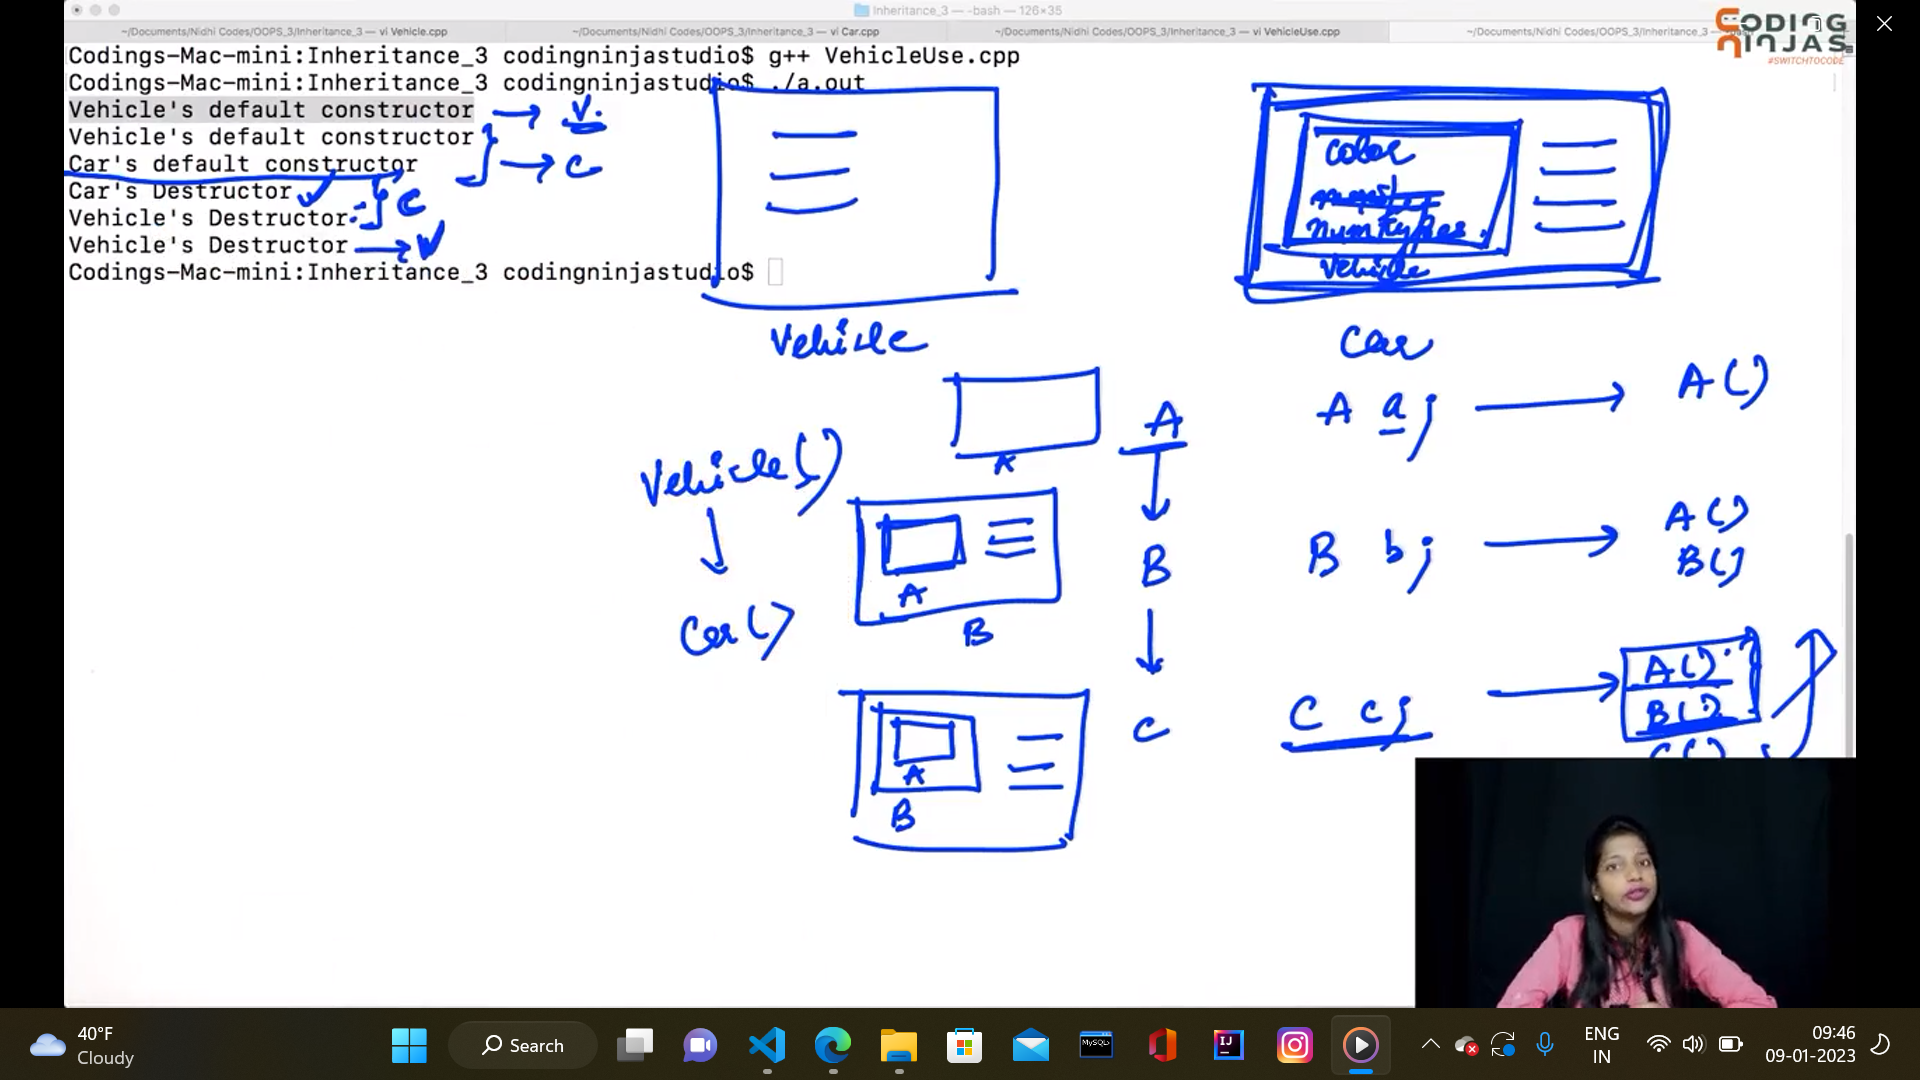 Inheritance_3 — -bash — 126×35
~/Documents/Nidhi Codes/OOPS_3/Inheritance_3 — vi Vehicle.cpp
~/Documents/Nidhi Codes/OOPS_3/Inheritance_3 — vi Car.cpp
~/Documents/Nidhi Codes/OOPS_3/Inheritance_3 — vi VehicleUse.cpp
~/Documents/Nidhi Codes/OOPS_3/Inheritance_3 — -bash
CODING
NINJAS
#SWITCHTOCODE
Codings-Mac-mini:Inheritance_3 codingninjastudio$ g++ VehicleUse.cpp
Codings-Mac-mini:Inheritance_3 codingninjastudio$ ./a.out
Vehicle's default constructor → V.
Vehicle's default constructor
Car's default constructor → C
Car's Destructor
C
Vehicle's Destructor
Vehicle's Destructor → V
Codings-Mac-mini:Inheritance_3 codingninjastudio$
Color
numTyres
Vehicle
Vehicle
Car
A
A
A a; → A()
Vehicle()
Car()
A
B
B
B b; → A()
B()
A
B
C
C c; → A()
B()
C()
40°F
Cloudy
Search
MySQL
IJ
ENG
IN
09:46
09-01-2023